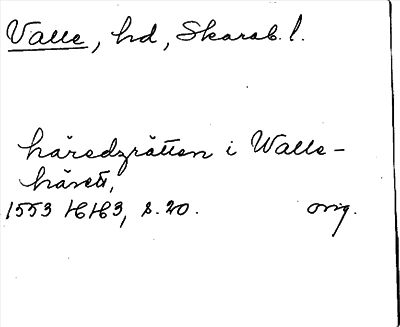 Valle, hd, Skarab. l.
häredzrätten i Walle-
häredt,
1553 16163, s. 20. orig.